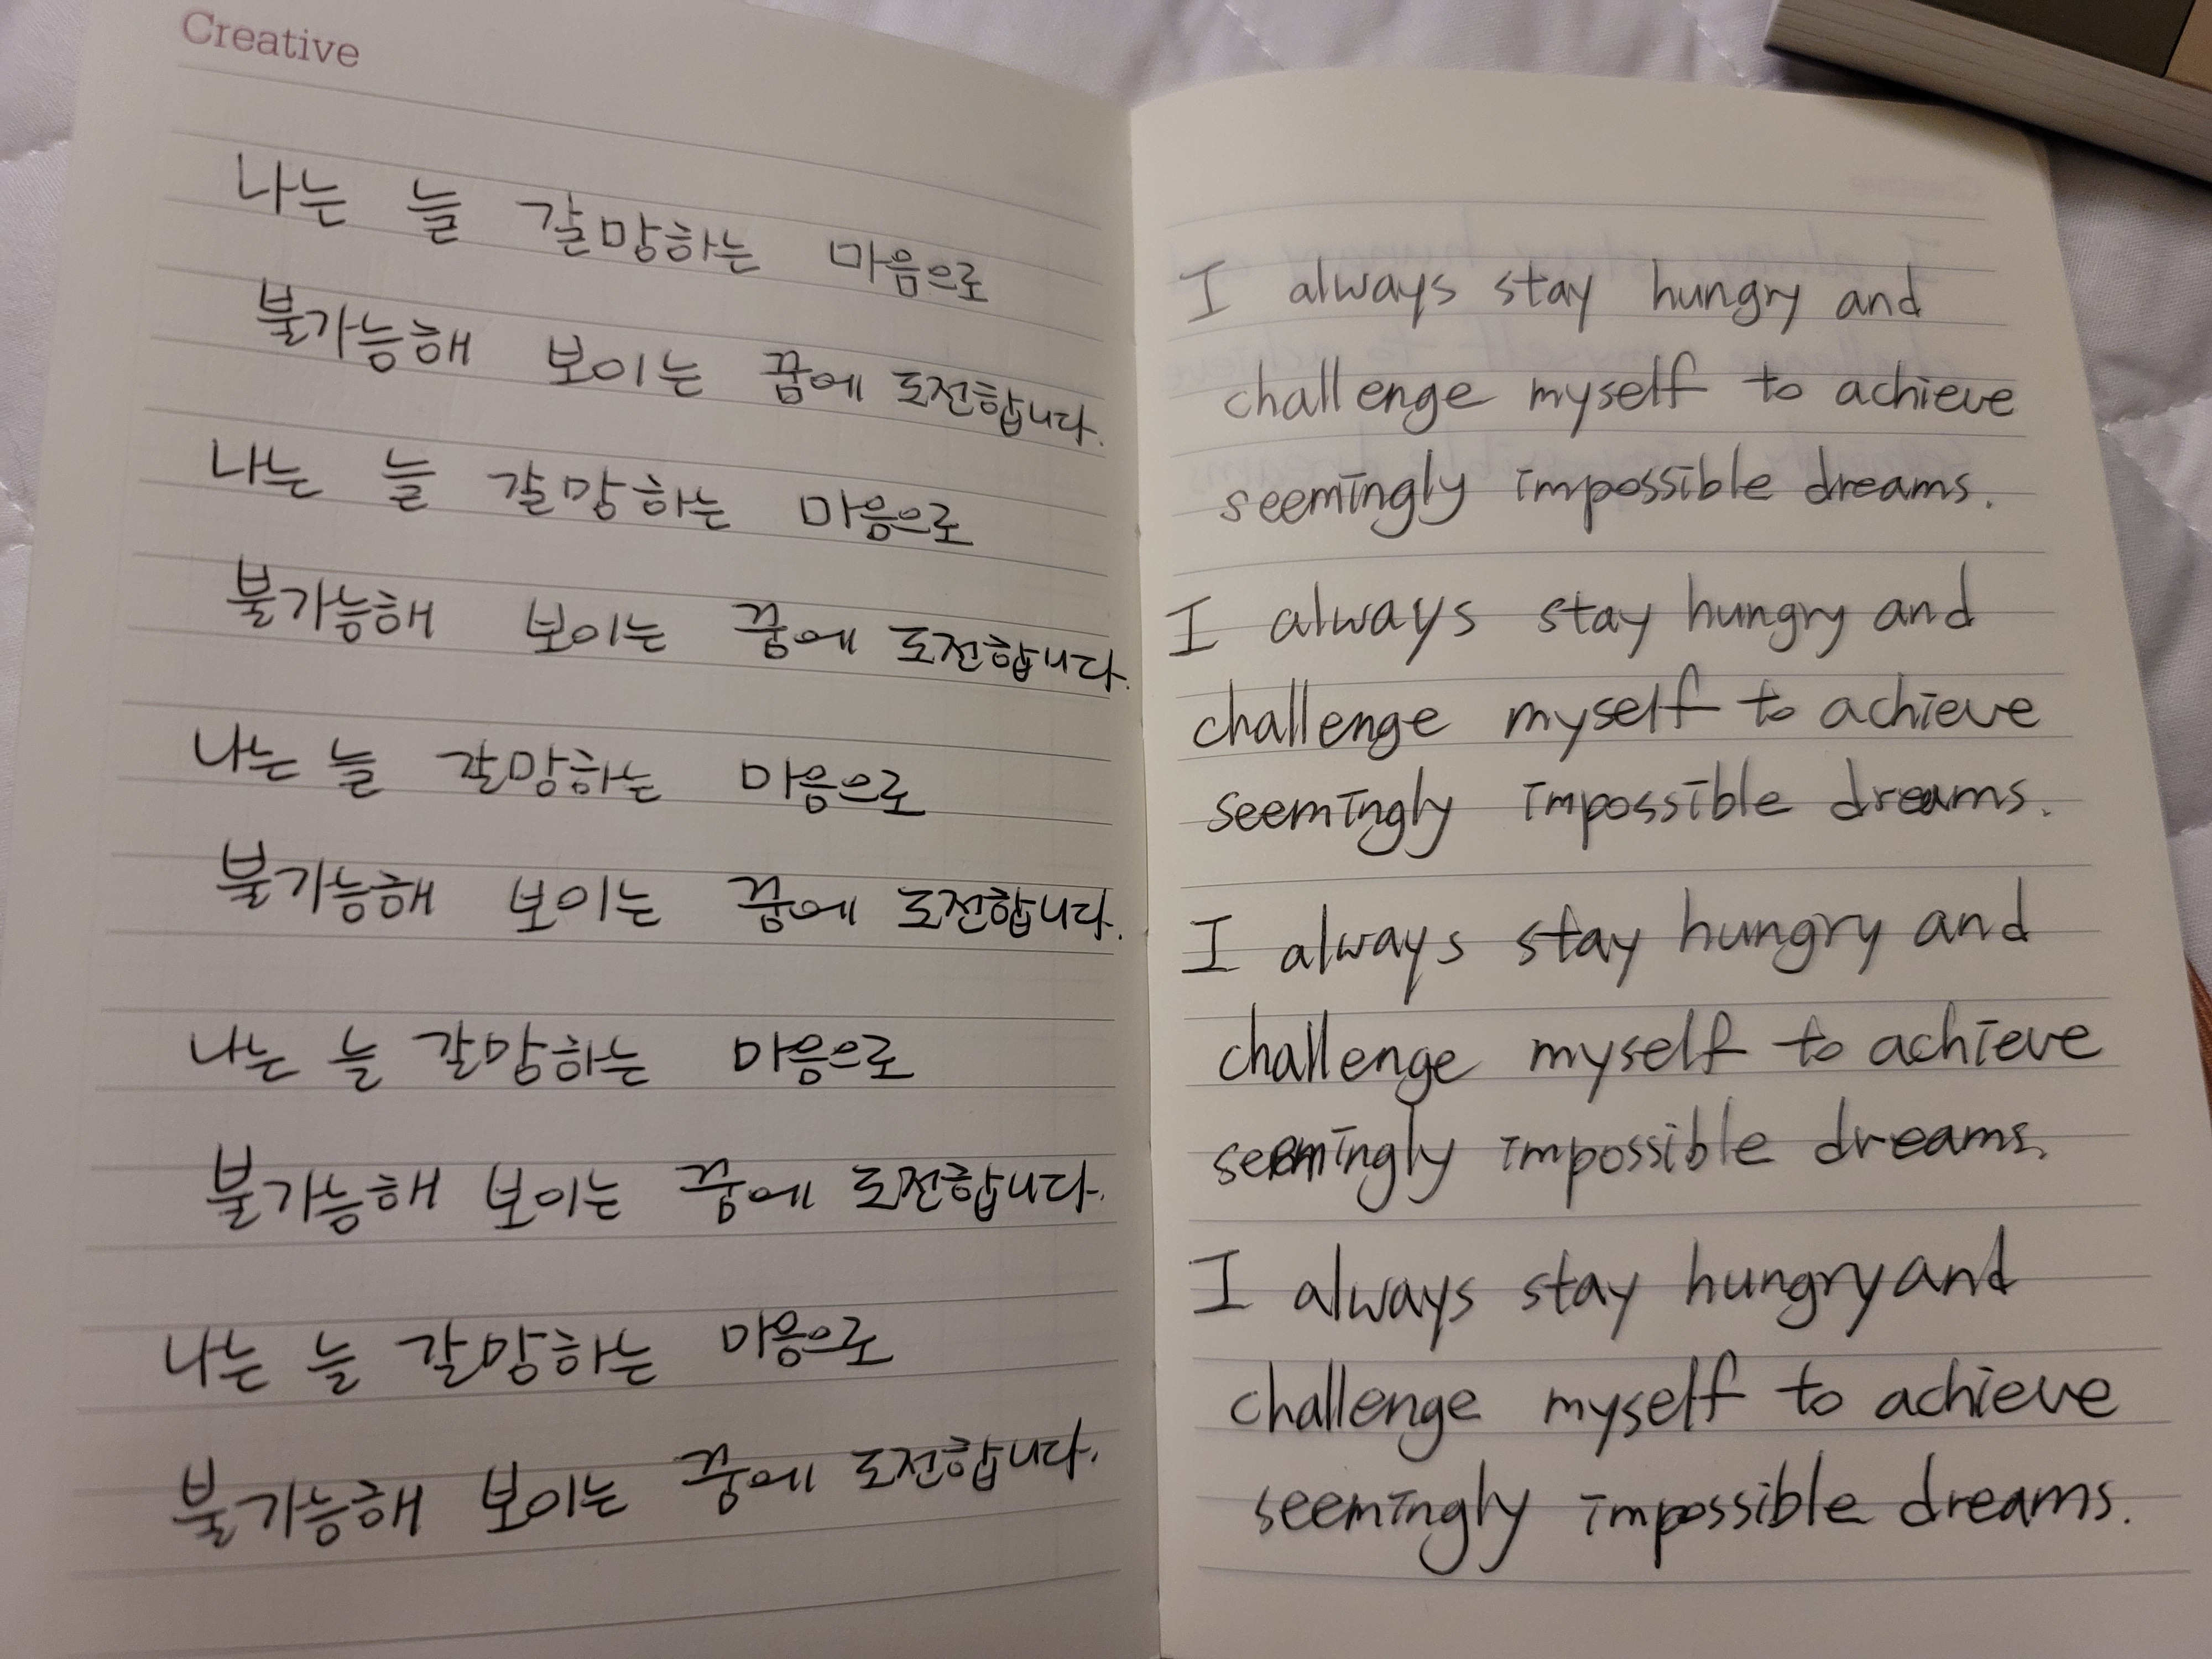 Creative
나는 늘 갈망하는 마음으로
불가능해 보이는 꿈에 도전합니다.
나는 늘 갈망하는 마음으로
불가능해 보이는 꿈에 도전합니다.
나는 늘 갈망하는 마음으로
불가능해 보이는 꿈에 도전합니다.
나는 늘 갈망하는 마음으로
불가능해 보이는 꿈에 도전합니다.
나는 늘 갈망하는 마음으로
불가능해 보이는 꿈에 도전합니다.
I always stay hungry and
challenge myself to achieve
seemingly impossible dreams.
I always stay hungry and
challenge myself to achieve
seemingly impossible dreams.
I always stay hungry and
challenge myself to achieve
seemingly impossible dreams.
I always stay hungry and
challenge myself to achieve
seemingly impossible dreams.